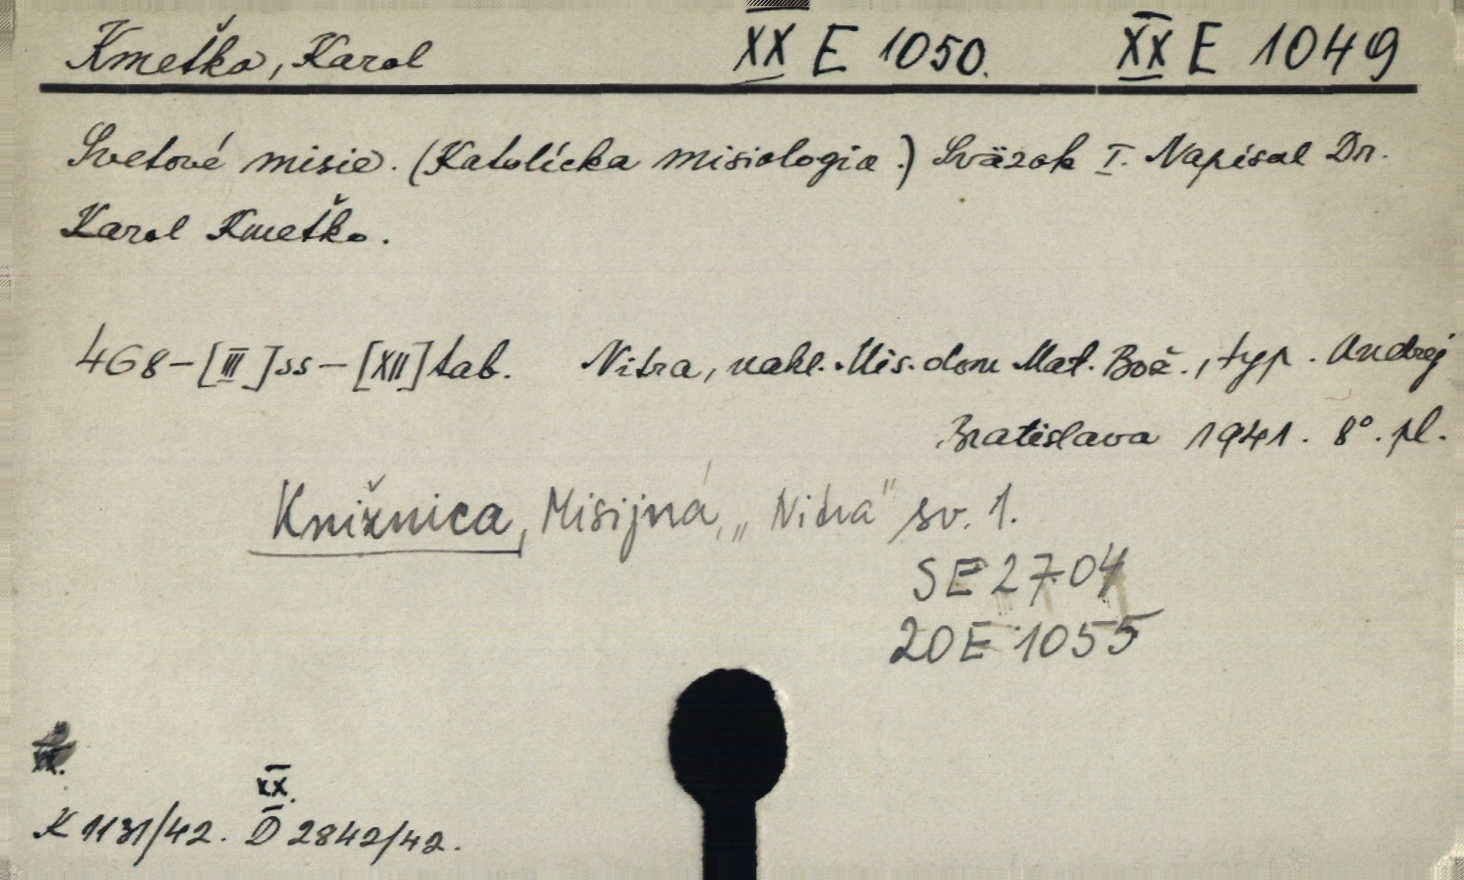 Kmeťko, Karol XX E 1050. XX E 1049
Svetové misie. (Katolícka misiologia.) Sväzok I. Napísal Dr.
Karol Kmeťko.
468-[III]ss-[XII]tab. Nitra, nakl. Mis. dom Mat. Bož., typ. Andrej
Bratislava 1941. 8°. pl.
Knižnica, Misijná, „Nitra" sv. 1.
SE 2704
20 E 1055
XX.
K 1131/42. D 2842/42.